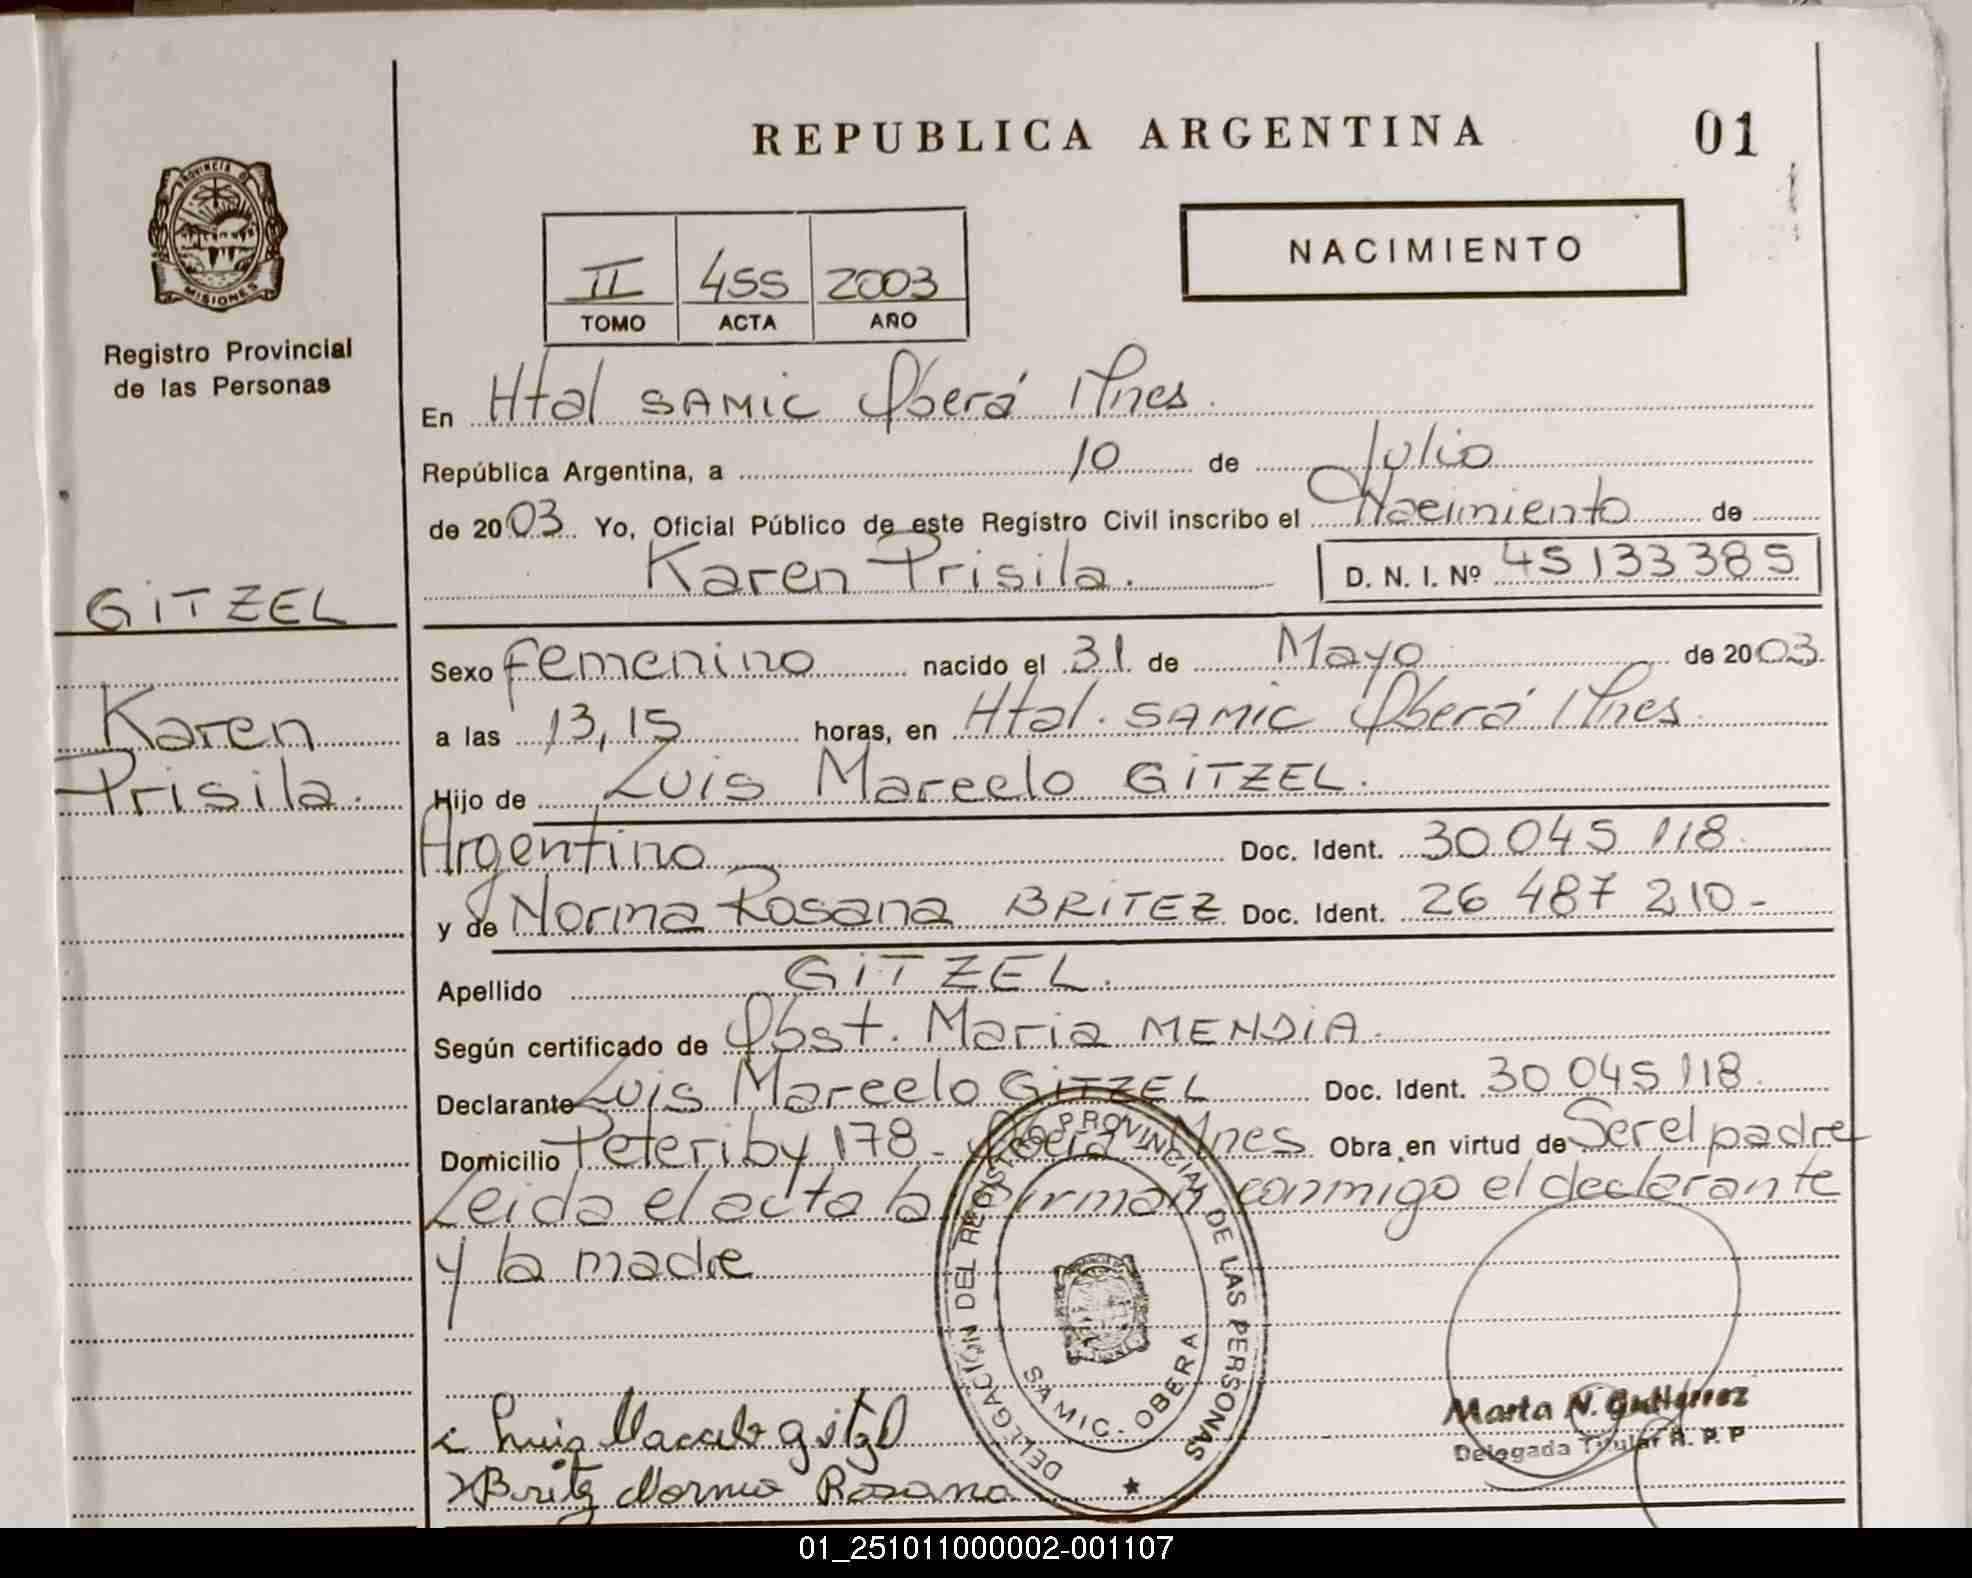 REPUBLICA ARGENTINA
01
PROVINCIA DE
MISIONES
Registro Provincial
de las Personas
NACIMIENTO
II 455 2003
TOMO ACTA AÑO
En Htal SAMIC Oberá Mnes.
República Argentina, a 10 de Julio
de 2003 Yo, Oficial Público de este Registro Civil inscribo el Nacimiento de
Karen Prisila. D. N. I. Nº 45 133 385
GiTZEL
Karen
Prisila.
Sexo femenino nacido el 31 de Mayo de 2003.
a las 13,15 horas, en Htal. SAMIC Oberá Mnes
Hijo de Luis Marcelo GiTZEL.
Argentino Doc. Ident. 30 045 118.
y de Norma Rosana BRiTEZ Doc. Ident. 26 487 210 -
Apellido GiTZEL.
Según certificado de Obst. Maria MENDiA.
Declarante Luis Marcelo GiTZEL Doc. Ident. 30 045 118.
Domicilio Peteriby 178 - Oberá Mnes Obra en virtud de Ser el padre
Leida el acta la firman conmigo el declarante
y la madre
DELEGACIÓN DEL REGISTRO PROVINCIAL DE LAS PERSONAS
SAMIC - OBERA
Luis Marcelo gitzel
Britez Norma Rosana
Marta N. Gutierrez
Delegada Titular R. P. P
01_251011000002-001107